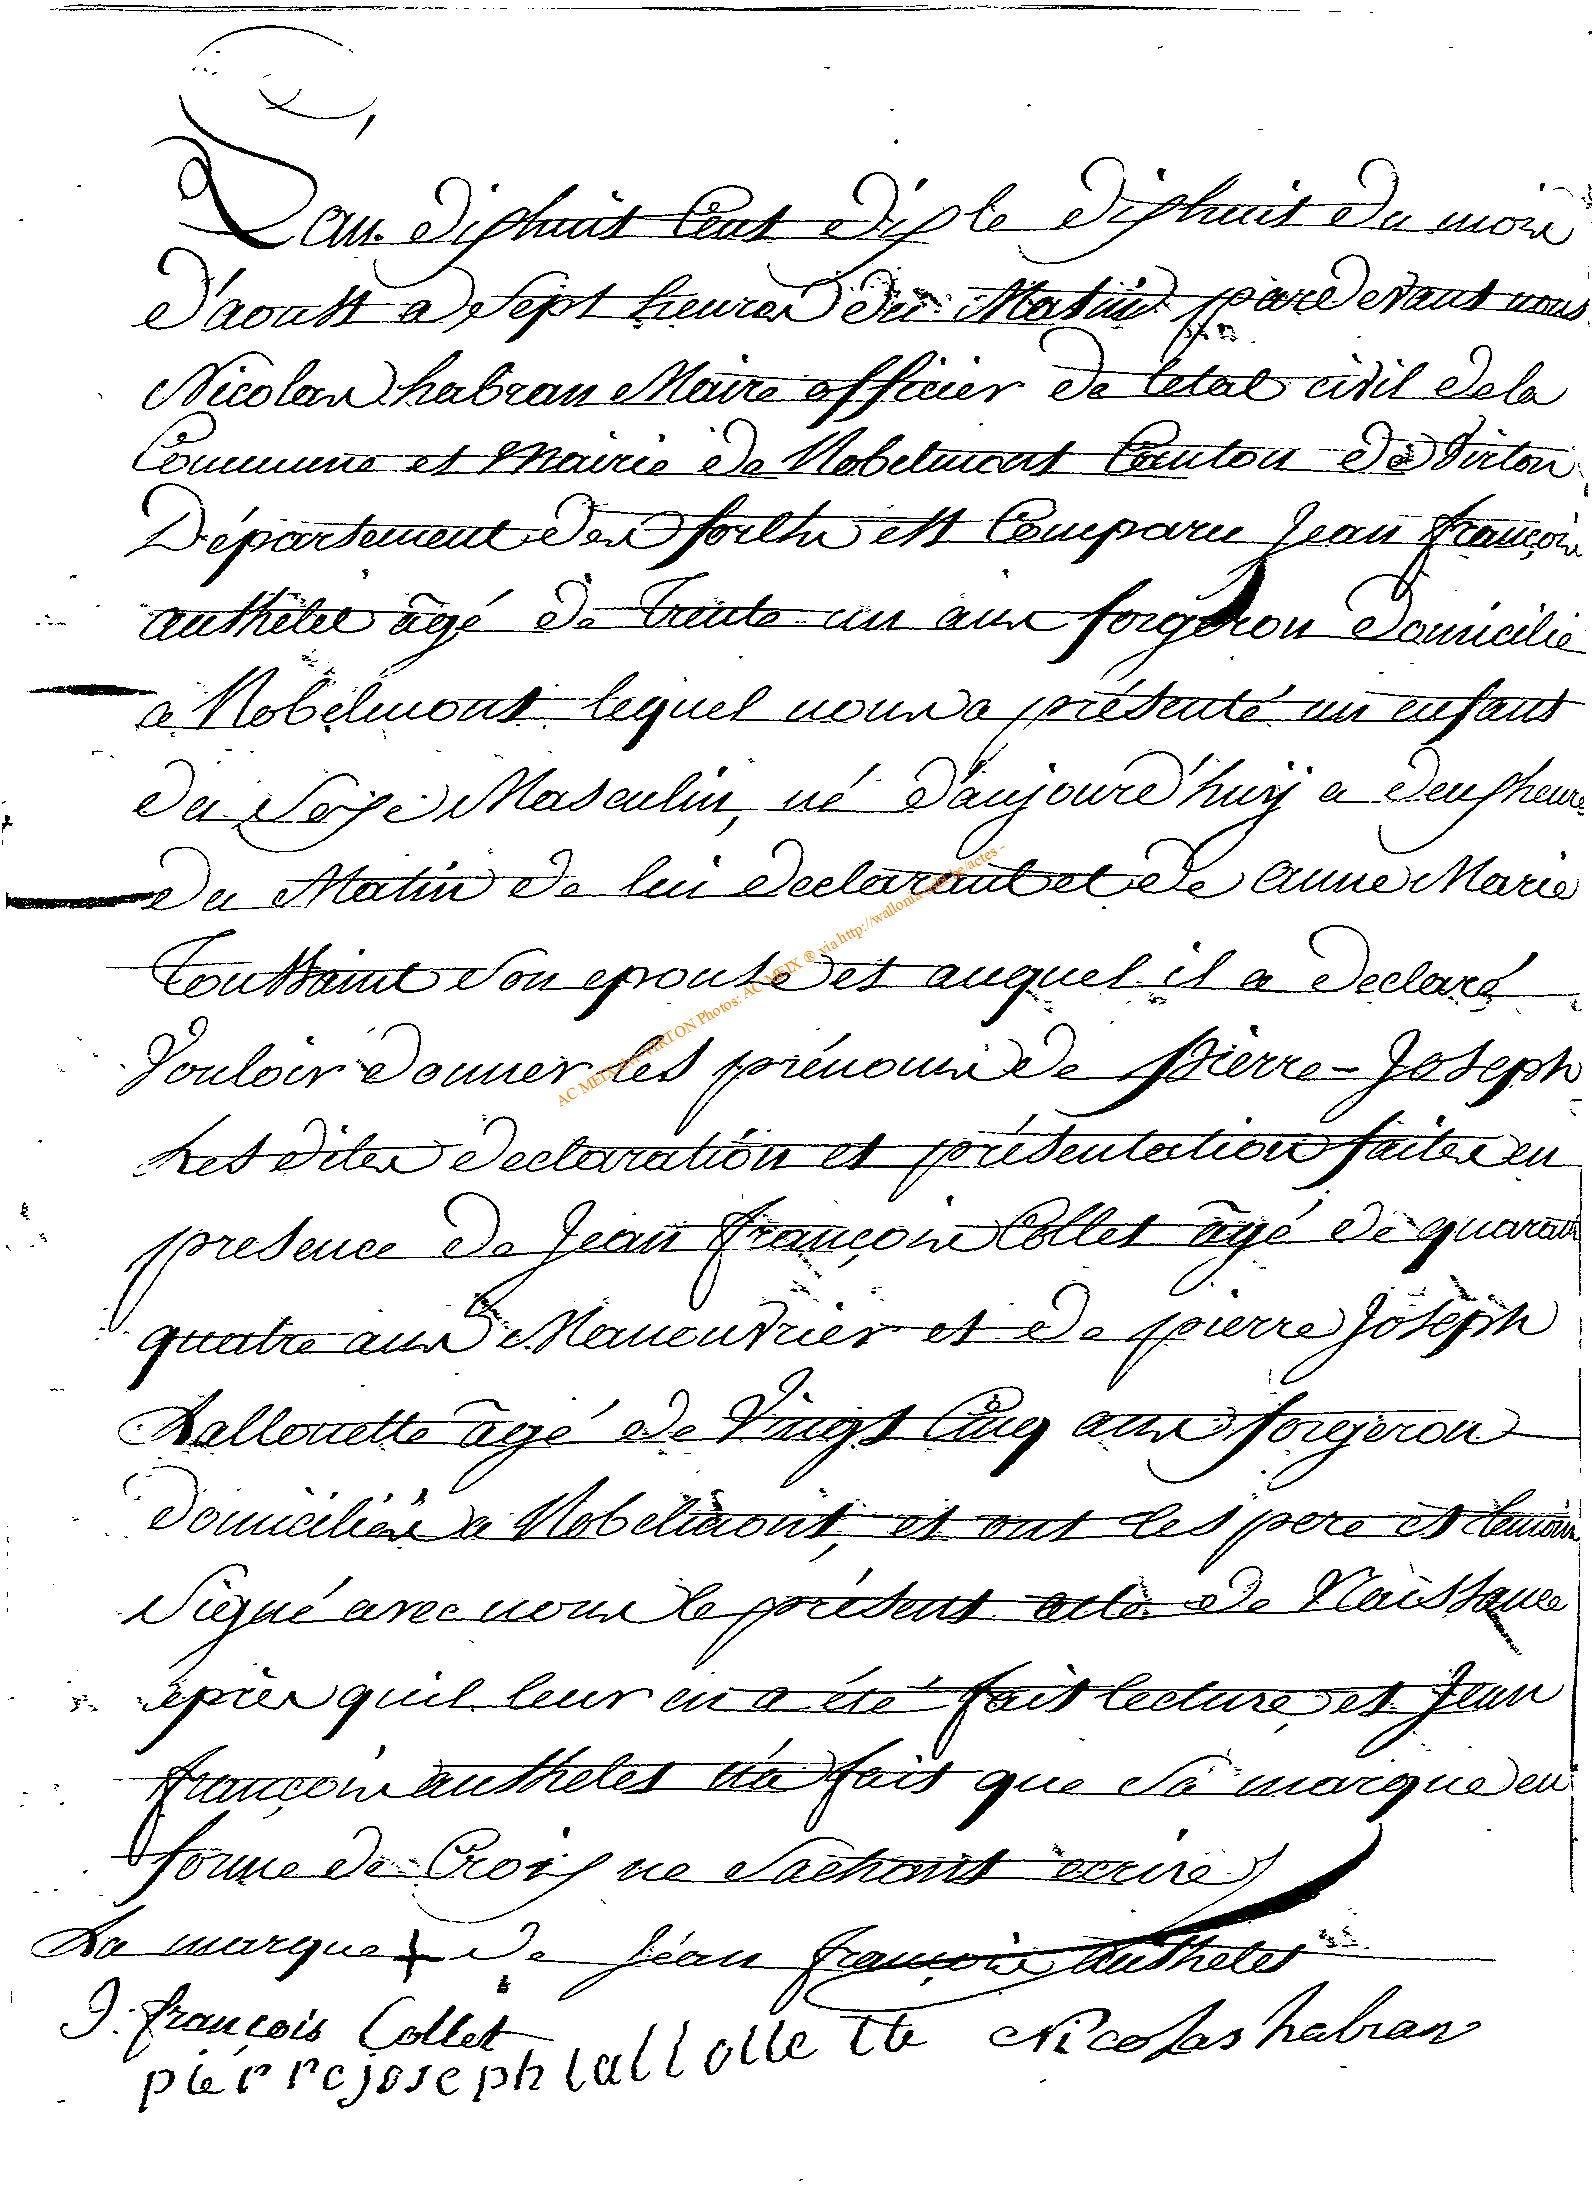 L'an dixhuit Cent dix le dixhuit du mois
d'aoust a Sept heures du Matin pardevant nous
Nicolas habran Maire officier de letat civil dela
Commune et Mairie de Robelmont Canton de Virton
Département des forets est Comparu Jean françois
authelet âgé de Trente un ans forgeron domicilié
a Robelmont lequel nous a présenté un enfant
du Sexe Masculin, né d'aujourd'huy a deux heures
du Matin de lui declarant et de anne Marie
Toussaint Son epouse et auquel il a declaré
Vouloir donner les prénoms de Pierre-Joseph
Les dites declaration et présentation faites en
presence de Jean françois Collet âgé de quarante
quatre ans Manouvrier et de pierre Joseph
Lallouette âgé de Vingt Cinq ans forgeron
domiciliés a Robelmont, et ont les pere et temoins
Signé avec nous le présent acte de Naissance
apres quil leur en a été fait lecture, et Jean
françois authelet n'a fait que Sa marque en
forme de Croix ne Sachant ecrire
La marque + de Jean françois authelet
J. françois Collet
Nicolas habran
pierre joseph lallouette
AC MEIX-DT-VIRTON Photos: AC MEIX ® via http://wallonia- actes -